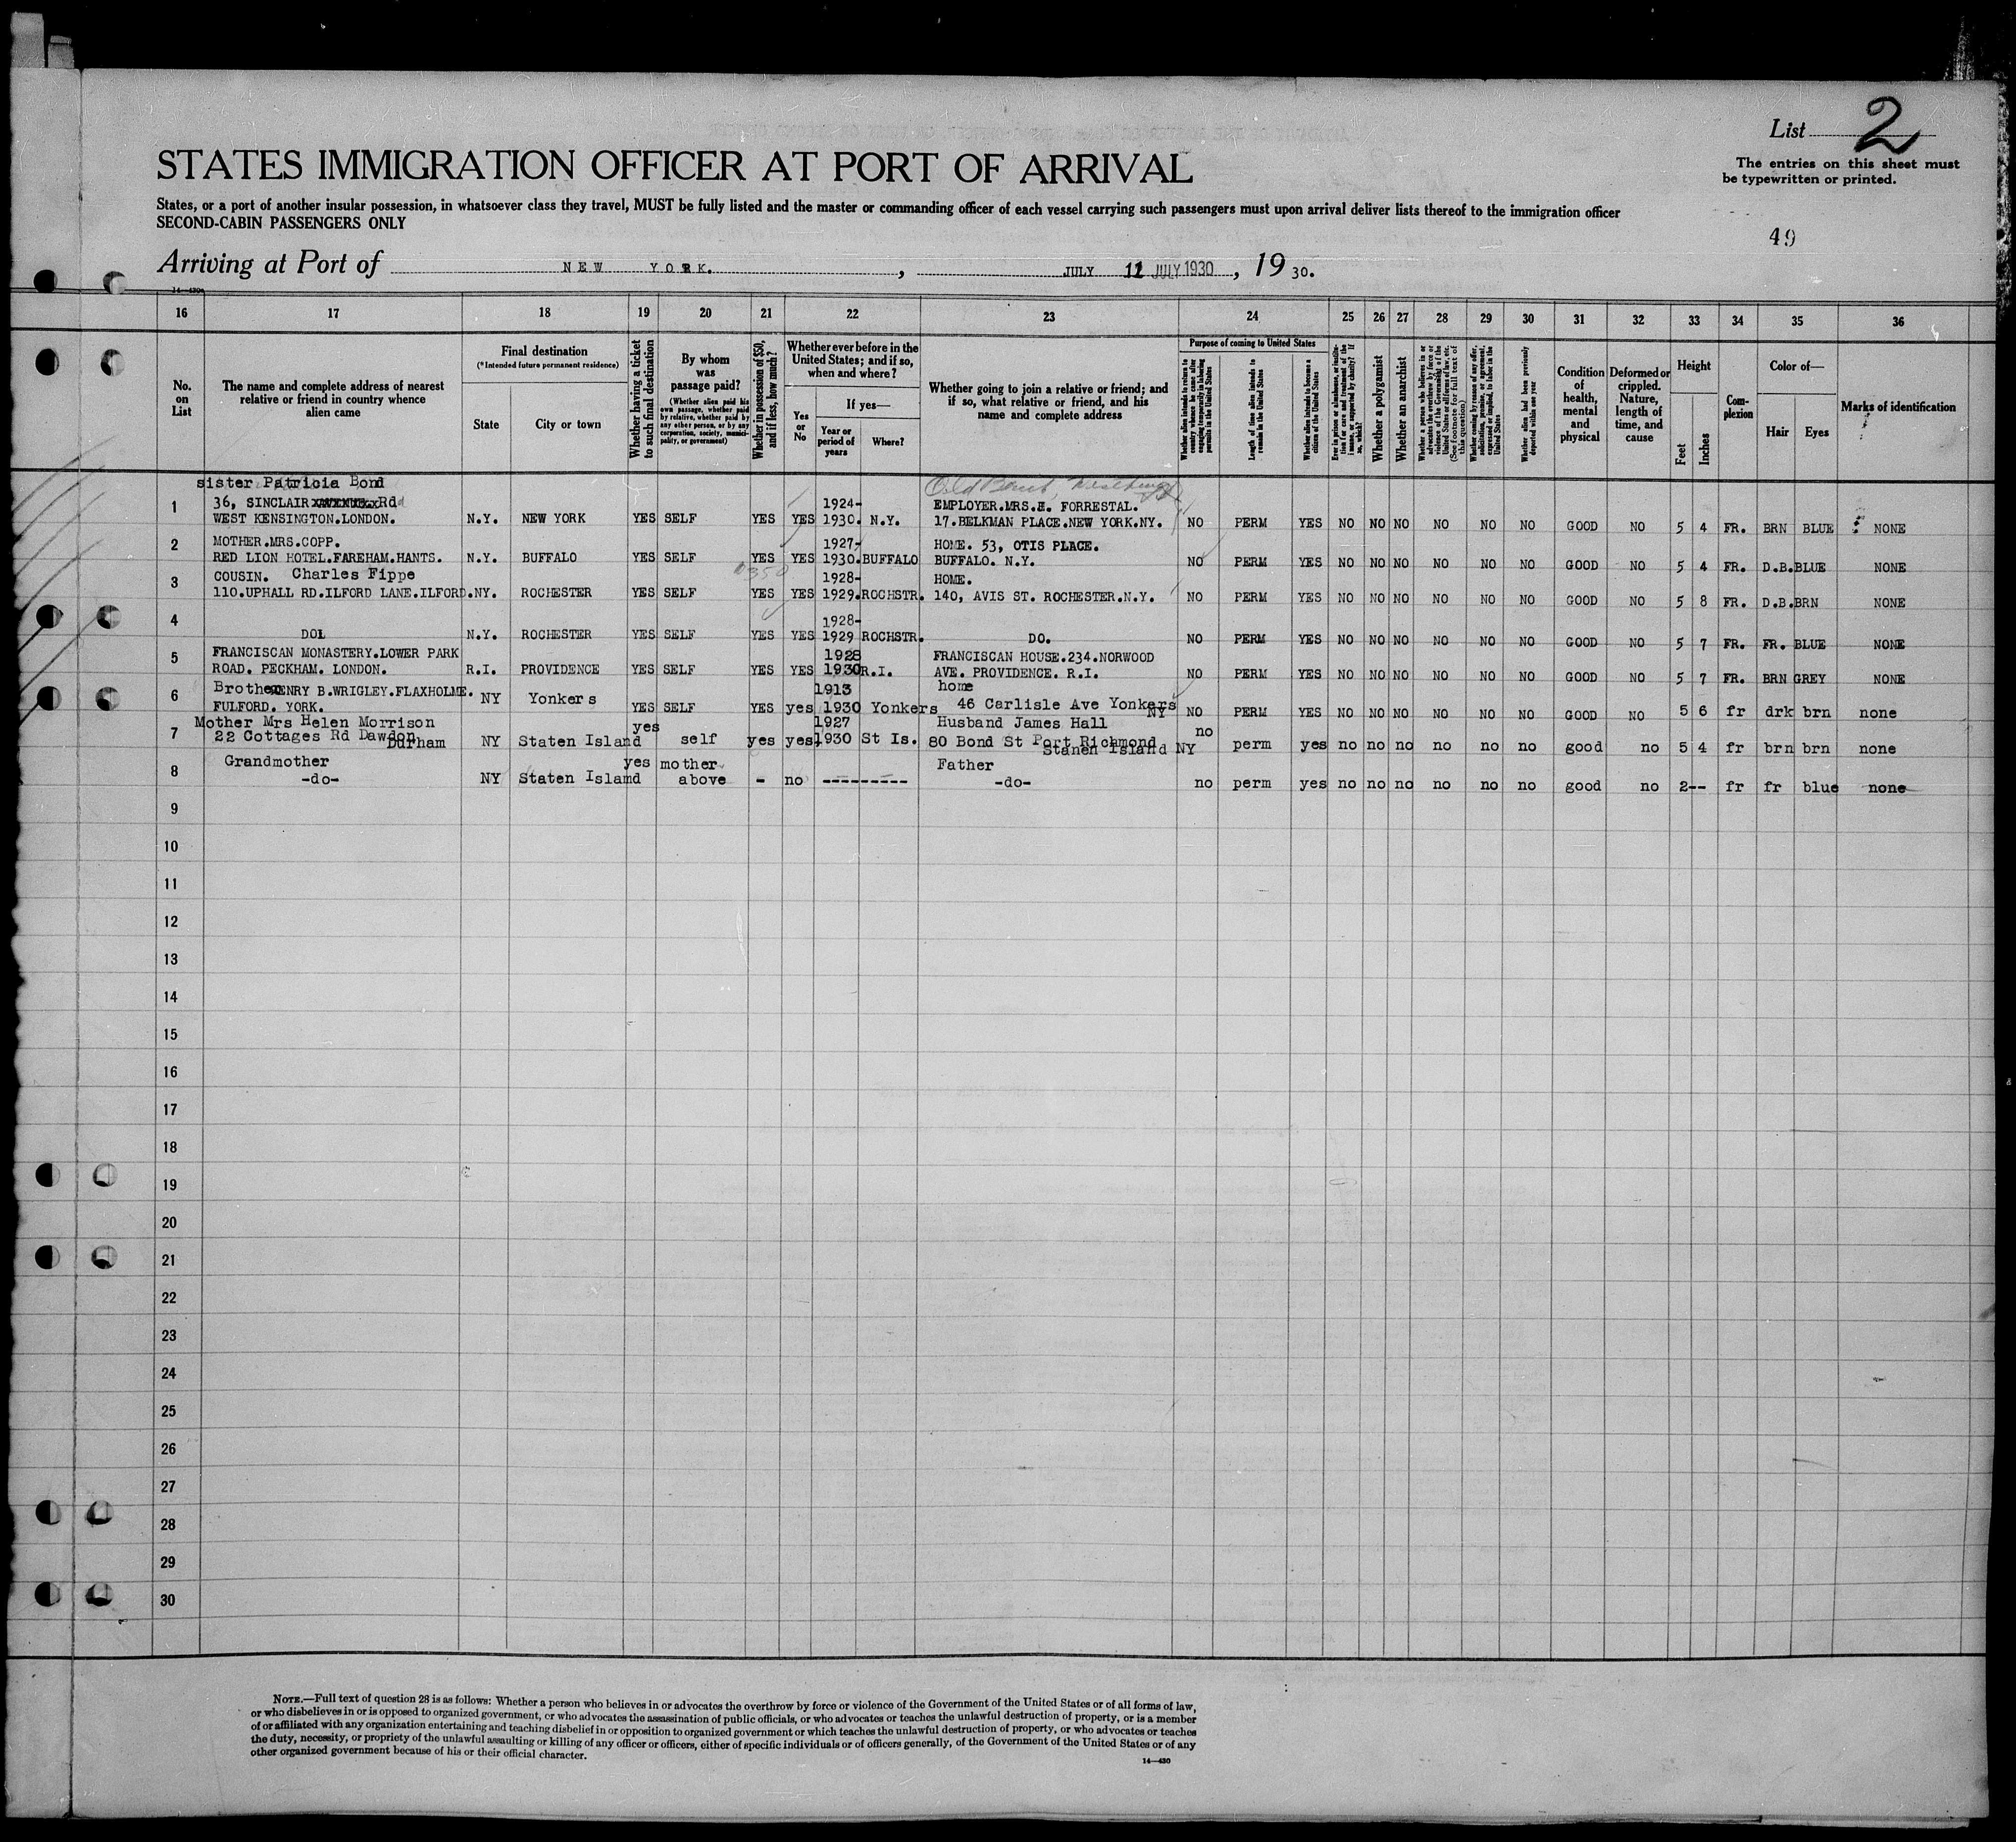 List 2
The entries on this sheet must
be typewritten or printed.
STATES IMMIGRATION OFFICER AT PORT OF ARRIVAL
States, or a port of another insular possession, in whatsoever class they travel, MUST be fully listed and the master or commanding officer of each vessel carrying such passengers must upon arrival deliver lists thereof to the immigration officer
SECOND-CABIN PASSENGERS ONLY
49
Arriving at Port of NEW YORK. , JULY 11 JULY 1930 , 19 30.
16 17 18 19 20 21 22 23 24 25 26 27 28 29 30 31 32 33 34 35 36
No. on List
The name and complete address of nearest relative or friend in country whence alien came
Final destination
(*Intended future permanent residence)
State
City or town
Whether having a ticket to such final destination
By whom was passage paid?
(Whether alien paid his own passage, whether paid by relative, whether paid by any other person, or by any corporation, society, municipality, or government)
Whether in possession of $50, and if less, how much?
Whether ever before in the United States; and if so, when and where?
Yes or No
If yes—
Year or period of years
Where?
Whether going to join a relative or friend; and if so, what relative or friend, and his name and complete address
Purpose of coming to United States
Length of time alien intends to remain in the United States
Whether alien intends to become a citizen of the United States
Whether a polygamist
Whether an anarchist
Whether alien had been previously deported within one year
Condition of health, mental and physical
Deformed or crippled. Nature, length of time, and cause
Height
Feet
Inches
Complexion
Color of—
Hair
Eyes
Marks of identification
sister Patricia Bond
1 36, SINCLAIR Rd 1924- EMPLOYER.MRS.H. FORRESTAL.
WEST KENSINGTON.LONDON. N.Y. NEW YORK YES SELF YES YES 1930. N.Y. 17.BELKMAN PLACE.NEW YORK.NY. NO PERM YES NO NO NO NO NO NO GOOD NO 5 4 FR. BRN BLUE NONE
2 MOTHER.MRS.COPP. 1927- HOME. 53, OTIS PLACE.
RED LION HOTEL.FAREHAM.HANTS. N.Y. BUFFALO YES SELF YES YES 1930. BUFFALO BUFFALO. N.Y. NO PERM YES NO NO NO NO NO NO GOOD NO 5 4 FR. D.B. BLUE NONE
3 COUSIN. Charles Fippe 1928- HOME.
110.UPHALL RD.ILFORD LANE.ILFORD. NY. ROCHESTER YES SELF YES YES 1929. ROCHSTR. 140, AVIS ST. ROCHESTER.N.Y. NO PERM YES NO NO NO NO NO NO GOOD NO 5 8 FR. D.B. BRN NONE
4 1928-
DOL N.Y. ROCHESTER YES SELF YES YES 1929 ROCHSTR. DO. NO PERM YES NO NO NO NO NO NO GOOD NO 5 7 FR. FR. BLUE NONE
5 FRANCISCAN MONASTERY.LOWER PARK 1928 FRANCISCAN HOUSE.234.NORWOOD
ROAD. PECKHAM. LONDON. R.I. PROVIDENCE YES SELF YES YES 1930 R.I. AVE. PROVIDENCE. R.I. NO PERM YES NO NO NO NO NO NO GOOD NO 5 7 FR. BRN GREY NONE
6 Brother HENRY B.WRIGLEY.FLAXHOLME. 1913 home
FULFORD. YORK. NY Yonkers YES SELF YES yes 1930 Yonkers 46 Carlisle Ave Yonkers NY NO PERM YES NO NO NO NO NO NO GOOD NO 5 6 fr drk brn none
7 Mother Mrs Helen Morrison 1927 Husband James Hall
22 Cottages Rd Dawdon Durham NY Staten Island yes self yes yes 1930 St Is. 80 Bond St Port Richmond Stanen Island NY no perm yes no no no no no no good no 5 4 fr brn brn none
8 Grandmother yes mother Father
-do- NY Staten Island above - no --------- -do- no perm yes no no no no no no good no 2-- fr fr blue none
9
10
11
12
13
14
15
16
17
18
19
20
21
22
23
24
25
26
27
28
29
30
NOTE.—Full text of question 28 is as follows: Whether a person who believes in or advocates the overthrow by force or violence of the Government of the United States or of all forms of law,
or who disbelieves in or is opposed to organized government, or who advocates the assassination of public officials, or who advocates or teaches the unlawful destruction of property, or is a member
of or affiliated with any organization entertaining and teaching disbelief in or opposition to organized government or which teaches the unlawful destruction of property, or who advocates or teaches
the duty, necessity, or propriety of the unlawful assaulting or killing of any officer or officers, either of specific individuals or of officers generally, of the Government of the United States or of any
other organized government because of his or their official character.
14—430